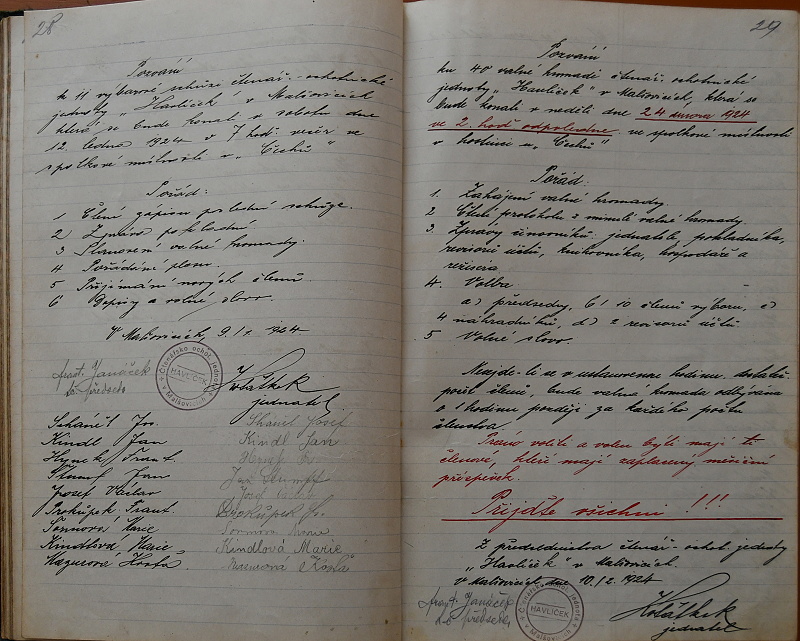 28
Pozvání
k 11 výborové schůzi čtenář.-ochotnické
jednoty "Havlíček" v Malkovicích
která se bude konat v sobotu dne
12 ledna 1924 v 7 hodi večír ve
spolkové místnosti v "Čechů"
Pořád:
1 Čtení zápisu poslední schůze.
2 Zpráva pokladní
3 Stanovení valné hromady.
4 Pořádání plesu
5 Přijímání nových členů
6 Dopisy a volné slovo.
V Malkovicích 9./1. 1924
Frant. Janáček
t.č. předseda
Čtenářsko ochot. jednota
HAVLÍČEK
v Malkovicích
jednatel
Schánĕl Jos. Schánĕl Josef
Kindl Jan Kindl Jan
Hynek Frant.
Stumpf Jan Jan Stumpf
Josef Václav
Prokůpek Frant. Prokůpek Fr.
Sonnová Marie
Kindlová Marie Kindlová Marie
29
Pozvání
ku 40 valné hromadě čtenář.-ochotnické
jednoty "Havlíček" v Malkovicích, která se
bude konati v neděli dne 24 února 1924
ve 2. hod odpoledne ve spolkové místnosti
v hostinci u "Čechů"
Pořád:
1. Zahájení valné hromady.
2 Čtení protokolu z minulé valné hromady.
3. Zprávy činovníků: jednatele, pokladníka,
revisorů účtů, knihovníka, hospodáře a
režiséra
4. Volba
a) předsedy, b) 10 členů výboru, c)
4 náhradníků, d) 2 revisorů účtů.
5 Volné slovo.
Nesejde-li se v ustanovenou hodinu dostateč.
počet členů, bude valná hromada odbývána
o 1 hodinu později za každého počtu
členstva.
Právo voliti a volen býti mají ti
členové, kteří mají zaplacený měsíční
příspěvek.
Přijďte všichni !!!
Z předsednictva čtenář.-ochot. jednoty
"Havlíček" v Malkovicích.
V Malkovicích dne 10./2. 1924
Frant. Janáček
t.č. předseda
Čtenářsko ochot. jednota
HAVLÍČEK
jednatel